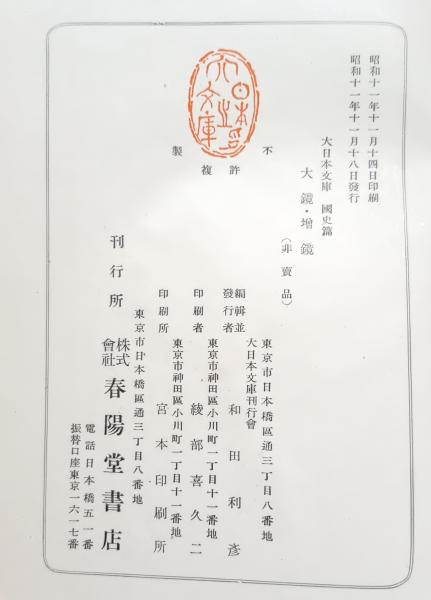 昭和十一年十一月十四日印刷
昭和十一年十一月十八日發行
大日本文庫 國史篇
大鏡・增鏡
(非賣品)
不許複製
東京市日本橋區通三丁目八番地
大日本文庫刊行會
編輯並
發行者 和田利彥
東京市神田區小川町一丁目十一番地
印刷者 綾部喜久二
東京市神田區小川町一丁目十一番地
印刷所 宮本印刷所
東京市日本橋區通三丁目八番地
刊行所 株式會社 春陽堂書店
電話日本橋五一番
振替口座東京一六一七番